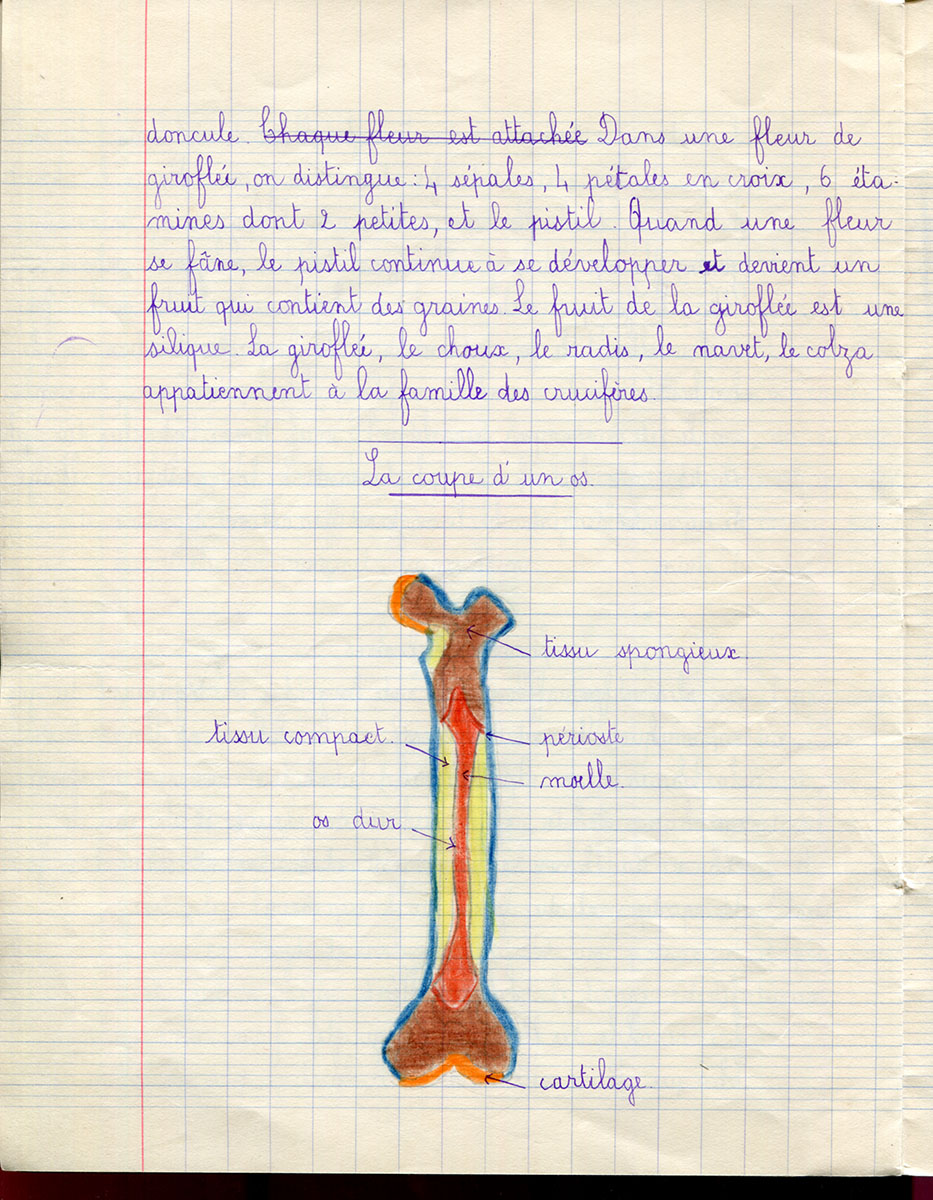 doncule. Chaque fleur est attachée Dans une fleur de
giroflée, on distingue : 4 sépales, 4 pétales en croix, 6 éta-
mines dont 2 petites, et le pistil. Quand une fleur
se fâne, le pistil continue à se développer et devient un
fruit qui contient des graines. Le fruit de la giroflée est une
silique. La giroflée, le choux, le radis, le navet, le colza
appatiennent à la famille des crucifères.
La coupe d'un os.
tissu spongieux.
tissu compact.
périoste
moelle.
os dur
cartilage.